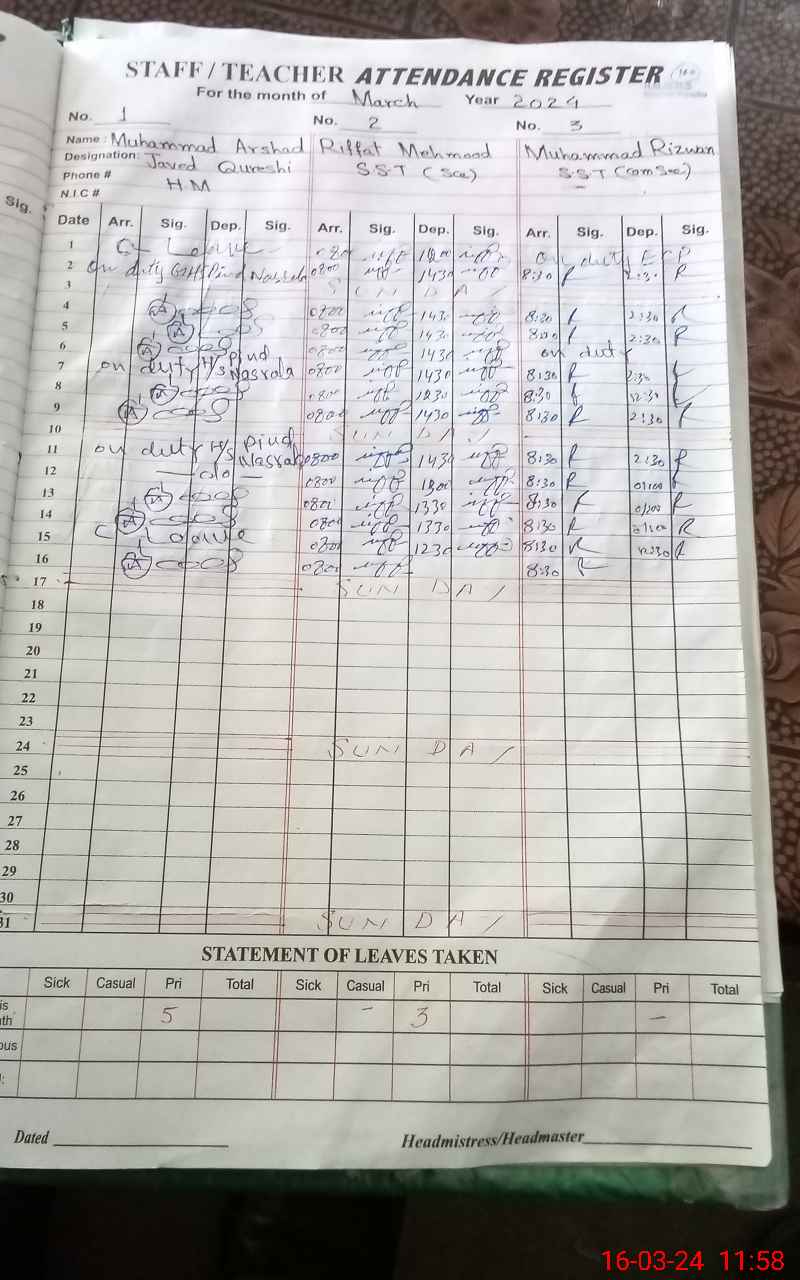 STAFF / TEACHER ATTENDANCE REGISTER
For the month of March Year 2024
No. 1 No. 2 No. 3
Name : Muhammad Arshad Riffat Mehmood Muhammad Rizwan
Designation: Javed Qureshi S.S.T (Sce) S.S.T (Com Sce)
Phone # H M
N.I.C #
Sig.
Date Arr. Sig. Dep. Sig. Arr. Sig. Dep. Sig. Arr. Sig. Dep. Sig.
1 C Leave 0800 1200 on duty
2 on duty 0800 1430 8:30 R 2:30 R
3 SUN DAY
4 A 0800 1430 8:30 R 2:30 R
5 A 0800 1430 R 2:30 R
6 A 0800 1430 on duty
7 on duty H/S Pind Nasrala 0800 1430 8:30 R 2:30
8 A 0800 1230 8:30 12:30
9 A 0800 1430 8:30 R 2:30 R
10 SUN DAY
11 on duty H/S Pind 0800 1430 8:30 R 2:30 R
12 — do — 0800 1300 8:30 R 01:00 R
13 A 0800 1330 8:30 R R
14 A 0800 1330 8:30 R R
15 C Leave 0800 1230 8:30 R 12:30 R
16 A 0800 8:30 R
17 SUN DAY
18
19
20
21
22
23
24 SUN DAY
25
26
27
28
29
30
31 SUN DAY
STATEMENT OF LEAVES TAKEN
Sick Casual Pri Total Sick Casual Pri Total Sick Casual Pri Total
5 - 3 -
Dated Headmistress/Headmaster
16-03-24 11:58